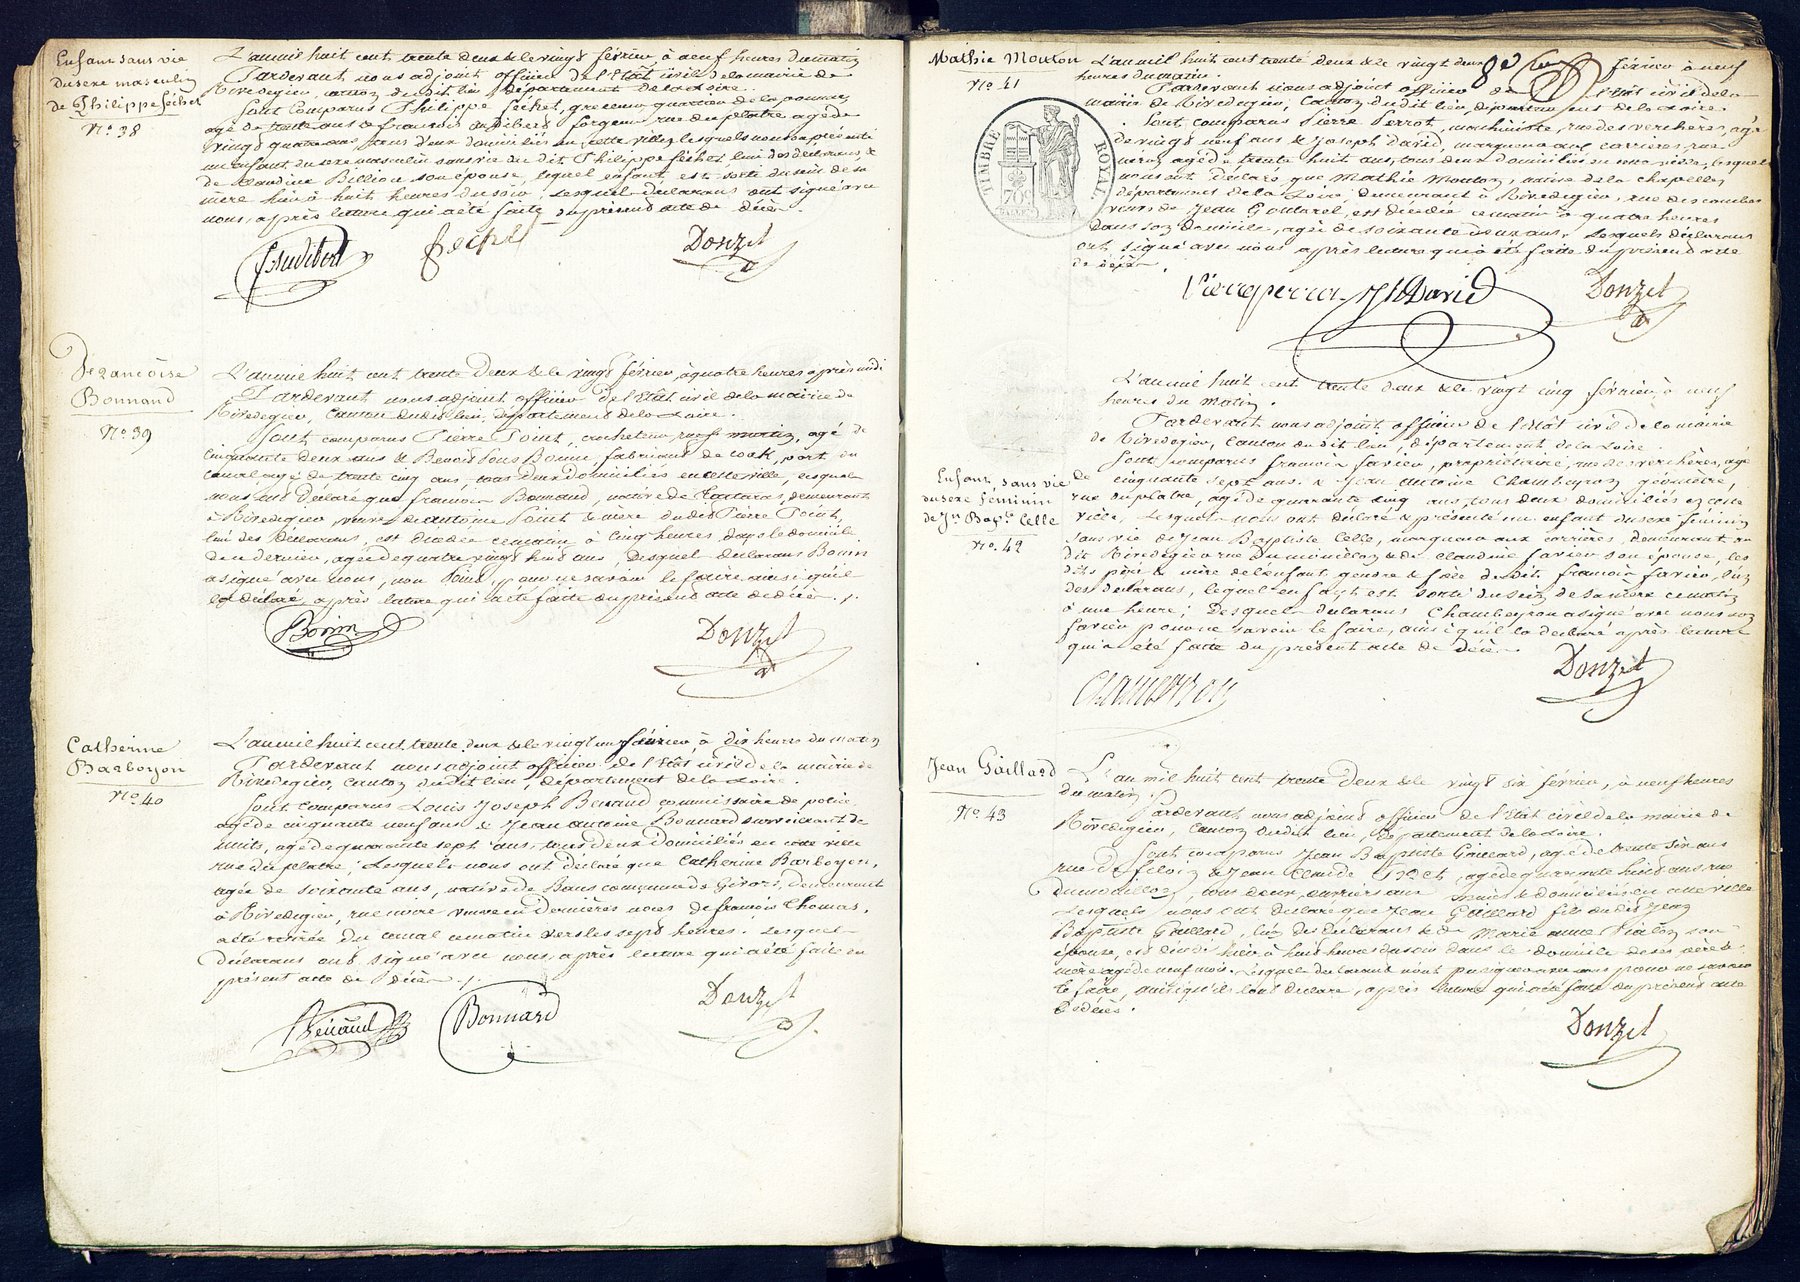 Enfant sans vie
du sexe masculin
de Philippe Séchet
N.o 38
L'an mil huit cent trente deux & le vingt février à neuf heures du matin
Pardevant nous adjoint officier de l'Etat civil de la mairie de
Rivedegier, canton du dit lieu département de la Loire.
Sont comparus Philippe Séchet,
agé de trente ans & françois Audibert forgeur rue du platre agé de
vingt quatre ans, tous deux domiciliés en cette ville, lesquels nous ont présenté
un enfant du sexe masculin sans vie du dit Philippe Séchet l'un des déclarans, &
de Claudine Billion son épouse, lequel enfant est sorti du sein de sa
mère hier à huit heures du soir. Lesquels déclarans ont signé avec
nous, après lecture qui a été faite du présent acte de décès.
f Audibert
Sechet
Donzel
Françoise
Bonnand
N.o 39
L'an mil huit cent trente deux & le vingt février, à quatre heures après midi
Pardevant nous adjoint officier de l'Etat civil de la mairie de
Rivedegier, canton du dit lieu, département de la Loire.
Sont comparus Pierre Point, crocheteur, rue St martin, agé de
cinquante deux ans & Benoit Bonin, fabricant de cook, port du
canal agé de trente cinq ans, tous deux domiciliés en cette ville, lesquels
nous ont déclaré que francoise Bonnand, native de Tartaras, demeurant
à Rivedegier, veuve de antoine Point & mère du dit Pierre Point,
l'un des déclarans, est décédée ce matin à cinq heures, dans le domicile
de ce dernier, agée de quatre vingt huit ans, Desquels déclarans Bonin
a signé avec nous, non Point, pour ne savoir le faire ainsi qu'il
l'a déclaré, après lecture qui a été faite du présent acte de décès.
Bonin
Donzel
Catherine
Barboyon
N.o 40
L'an mil huit cent trente deux & le vingt un février, à dix heures du matin
Pardevant nous adjoint officier de l'Etat civil de la mairie de
Rivedegier, canton du dit lieu, département de la Loire.
Sont comparus Louis Joseph Benaud commissaire de police
agé de cinquante neuf ans & Jean antoine Bonnard surveillant de
nuit, agé de quarante sept ans, tous deux domiciliés en cette ville
rue du platre; Lesquels nous ont déclaré que Catherine Barboyon,
agée de soixante ans, native de Bans commune de Givors, demeurant
à Rivedegier, rue noire veuve en dernières noces de françois Thomas,
a été retirée du canal ce matin vers les sept heures. Lesquels
déclarans ont signé avec nous, après lecture qui a été faite du
présent acte de décès.
Benaud
Bonnard
Donzel
Mathie Mouton
N.o 41
TIMBRE ROYAL
70c
8e
L'an mil huit cent trente deux & le vingt deux février à neuf
heures du matin
Pardevant nous adjoint officier de l'Etat civil de la
mairie de Rivedegier, canton du dit lieu, département de la Loire.
Sont comparus Pierre Perrot, machiniste, rue des verchères, agé
de vingt neuf ans & Joseph David, marqueur aux carrières, rue
agé de trente huit ans, tous deux domiciliés en cette ville, lesquels
nous ont déclaré que Mathie Mouton, native de la chapelle,
département de la Loire, demeurant à Rivedegier, rue des combes
veuve de Jean Goutarel, est décédée ce matin à quatre heures
dans son domicile, agée de soixante deux ans. Lesquels déclarans
ont signé avec nous après lecture qui a été faite du présent acte
de décès.
Pierre perrot
Jh David
Donzel
Enfant, sans vie
du sexe féminin
de Jn Bapte Celle
N.o 42
L'an mil huit cent trente deux & le vingt cinq février, à neuf
heures du matin.
Pardevant nous adjoint officier de l'état civil de la mairie
de Rivedegier, canton du dit lieu, département de la Loire.
Sont comparus francois favier, propriétaire, rue des verchères, agé
de cinquante sept ans & Jean Antoine Chambeyron géomètre,
rue du platre, agé de quarante cinq ans, tous deux domiciliés en cette
ville, Lesquels nous ont déclaré & présenté un enfant du sexe féminin
sans vie de Jean Baptiste Celle, marqueur aux carrières, demeurant au
dit Rivedegier rue du mouillon & de claudine favier son épouse, les
dits père & mère de l'enfant gendre & fille du dit francois favier, l'un
des déclarans, lequel enfant est sorti du sein de sa mère ce matin
à une heure; Desquels déclarans Chambeyron a signé avec nous non
favier pour ne savoir le faire, ainsi qu'il l'a déclaré après lecture
qui a été faite du présent acte de décès.
Chambeyron
Donzel
Jean Gaillard
N.o 43
L'an mil huit cent trente deux & le vingt six février, à neuf heures
du matin.
Pardevant nous adjoint officier de l'Etat civil de la mairie de
Rivedegier, canton du dit lieu, département de la Loire.
Sont comparus Jean Baptiste Gaillard, agé de trente six ans
rue de féloin & Jean claude agé de quarante huit ans rue
du mouillon, tous deux, ouvriers aux mines & domiciliés en cette ville
Lesquels nous ont déclaré que Jean Gaillard fils du dit Jean
Baptiste Gaillard, l'un des déclarans & de Marie anne Vialon son
épouse, est décédé hier à huit heures du soir dans le domicile de ses père &
mère agé de neuf mois. Lesquels déclarans n'ont pu signer avec nous pour ne savoir
le faire, ainsi qu'ils l'ont déclaré, après lecture qui a été faite du présent acte
de décès.
Donzel